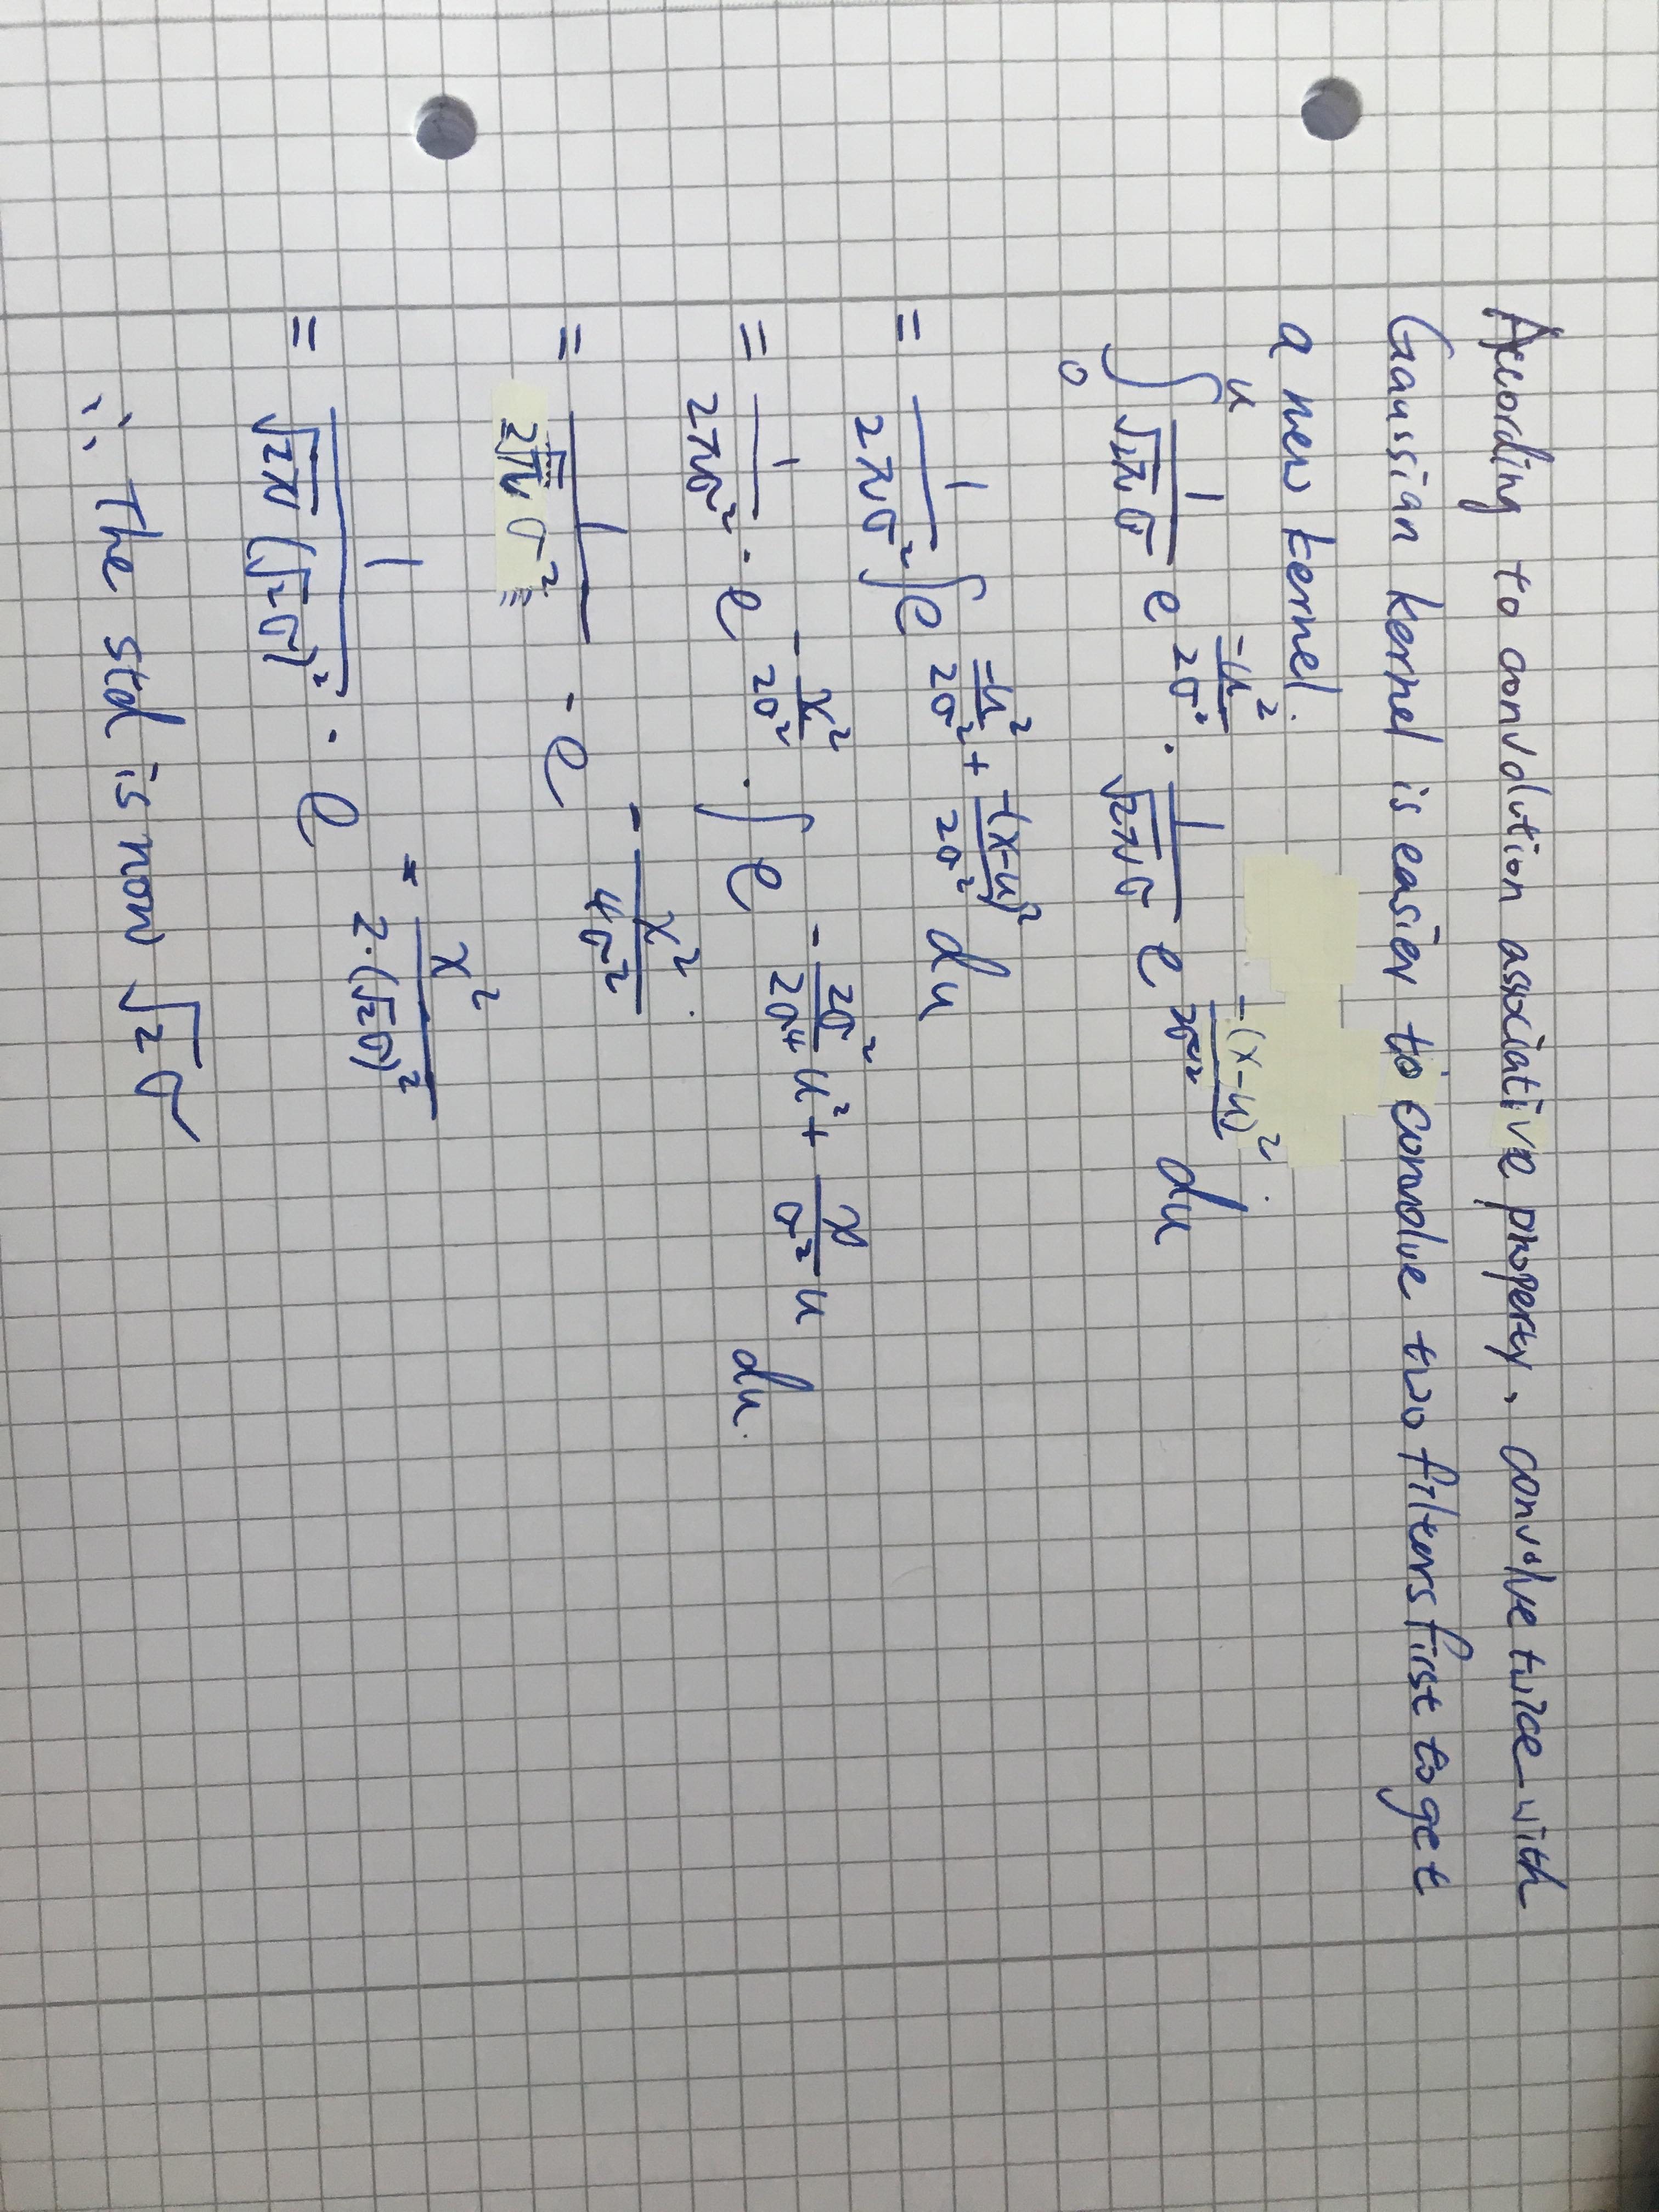 According to convolution associative property, convolve twice with
Gaussian kernel is easier to convolve two filters first to get
a new kernel.
∫₀ᵘ 1/(√2π σ) e^(-u²/2σ²) · 1/(√2π σ) e^(-(x-u)²/2σ²) du
= 1/(2πσ²) ∫ e^(-u²/2σ² + -(x-u)²/2σ²) du
= 1/(2πσ²) · e^(-x²/2σ²) · ∫ e^(-2σ²/2σ⁴ u² + x/σ² u) du.
= 1/(2√π σ²) · e^(-x²/4σ²)
= 1/(√2π (√2σ)²) · e^(-x²/2·(√2σ)²)
∴ The std is now √2 σ